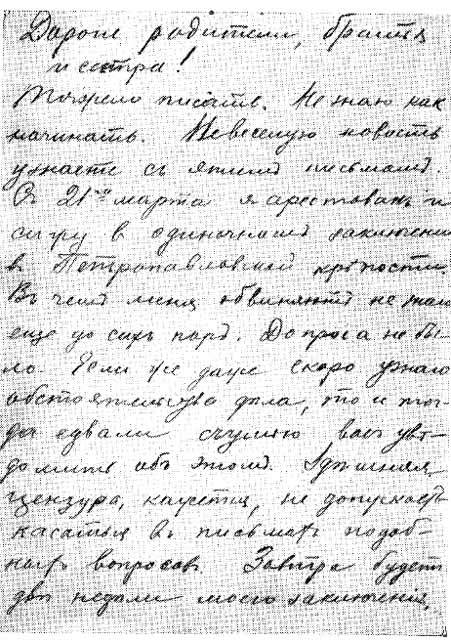 Дорогіе родители, братья
и сестра!
Тяжело писать. Не знаю какъ
начинать. Невеселую новость
узнаете съ этимъ письмомъ.
Съ 21го марта я арестованъ и
сижу в одиночномъ заключеніи
в Петропавловской крѣпости.
Въ чемъ меня обвиняютъ не знаю
еще до сихъ поръ. Допроса не бы-
ло. Если же даже скоро узнаю
обстоятельства дѣла, то и тог-
да едва ли съумѣю васъ увѣ-
домить объ этомъ. Здѣшняя
цензура, кажется, не допускаетъ
касаться въ письмахъ подоб-
ныхъ вопросовъ. Завтра будетъ
двѣ недѣли моего заключенія,